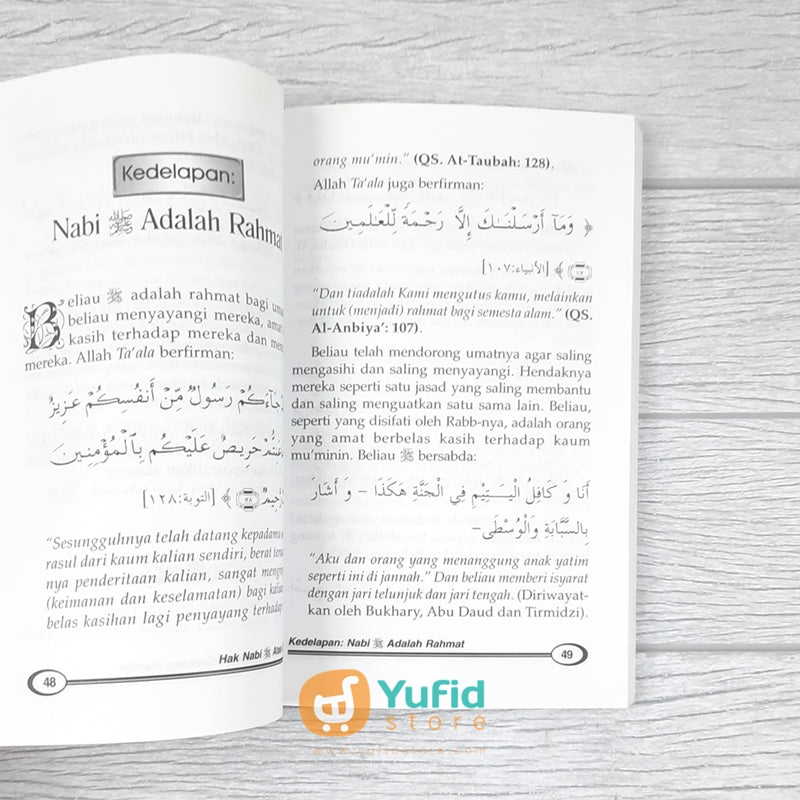 Kedelapan:
Nabi ﷺ Adalah Rahmat
Beliau ﷺ adalah rahmat bagi
beliau menyayangi mereka,
kasih terhadap mereka dan
mereka. Allah Ta'ala berfirman:
جَآءَكُمْ رَسُولٌ مِّنْ أَنفُسِكُمْ عَزِيزٌ
حَرِيصٌ عَلَيْكُم بِٱلْمُؤْمِنِينَ
[التوبة:١٢٨] ﴾ ١٢٨
"Sesungguhnya telah datang kepadamu
rasul dari kaum kalian sendiri, berat
nya penderitaan kalian, sangat
(keimanan dan keselamatan) bagi
belas kasihan lagi penyayang terhadap
Hak Nabi ﷺ
48
orang mu'min." (QS. At-Taubah: 128).
Allah Ta'ala juga berfirman:
﴿ وَمَآ أَرْسَلْنَـٰكَ إِلَّا رَحْمَةً لِّلْعَـٰلَمِينَ
﴾ [الأنبياء:١٠٧]
"Dan tiadalah Kami mengutus kamu, melainkan
untuk (menjadi) rahmat bagi semesta alam." (QS.
Al-Anbiya': 107).
Beliau telah mendorong umatnya agar saling
mengasihi dan saling menyayangi. Hendaknya
mereka seperti satu jasad yang saling membantu
dan saling menguatkan satu sama lain. Beliau,
seperti yang disifati oleh Rabb-nya, adalah orang
yang amat berbelas kasih terhadap kaum
mu'minin. Beliau ﷺ bersabda:
أَنَا وَ كَافِلُ الْيَتِيْمِ فِي الْجَنَّةِ هَكَذَا – وَ أَشَارَ
بِالسَّبَّابَةِ وَالْوُسْطَى–
"Aku dan orang yang menanggung anak yatim
seperti ini di jannah." Dan beliau memberi isyarat
dengan jari telunjuk dan jari tengah. (Diriwayat-
kan oleh Bukhary, Abu Daud dan Tirmidzi).
Kedelapan: Nabi ﷺ Adalah Rahmat
49
Yufid
store
www.yufidstore.com